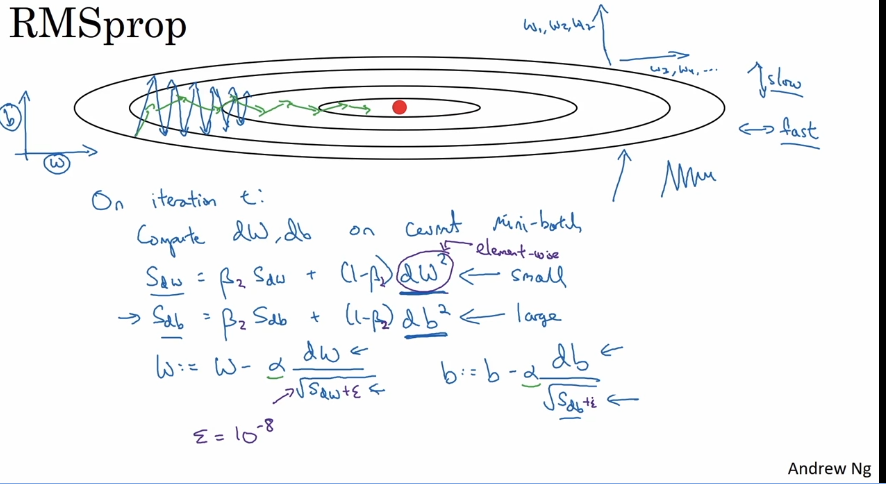 RMSprop
w₁, w₂, w₂
w₃, w₄, ...
slow
b
fast
w
On iteration t:
Compute dW, db on current mini-batch
element-wise
S_dw = β₂ S_dw + (1-β₂) dW² ← small
→ S_db = β₂ S_db + (1-β₂) db² ← large
W := W - α dW / √S_dw + ε ← b := b - α db / √S_db + ε ←
ε = 10⁻⁸
Andrew Ng